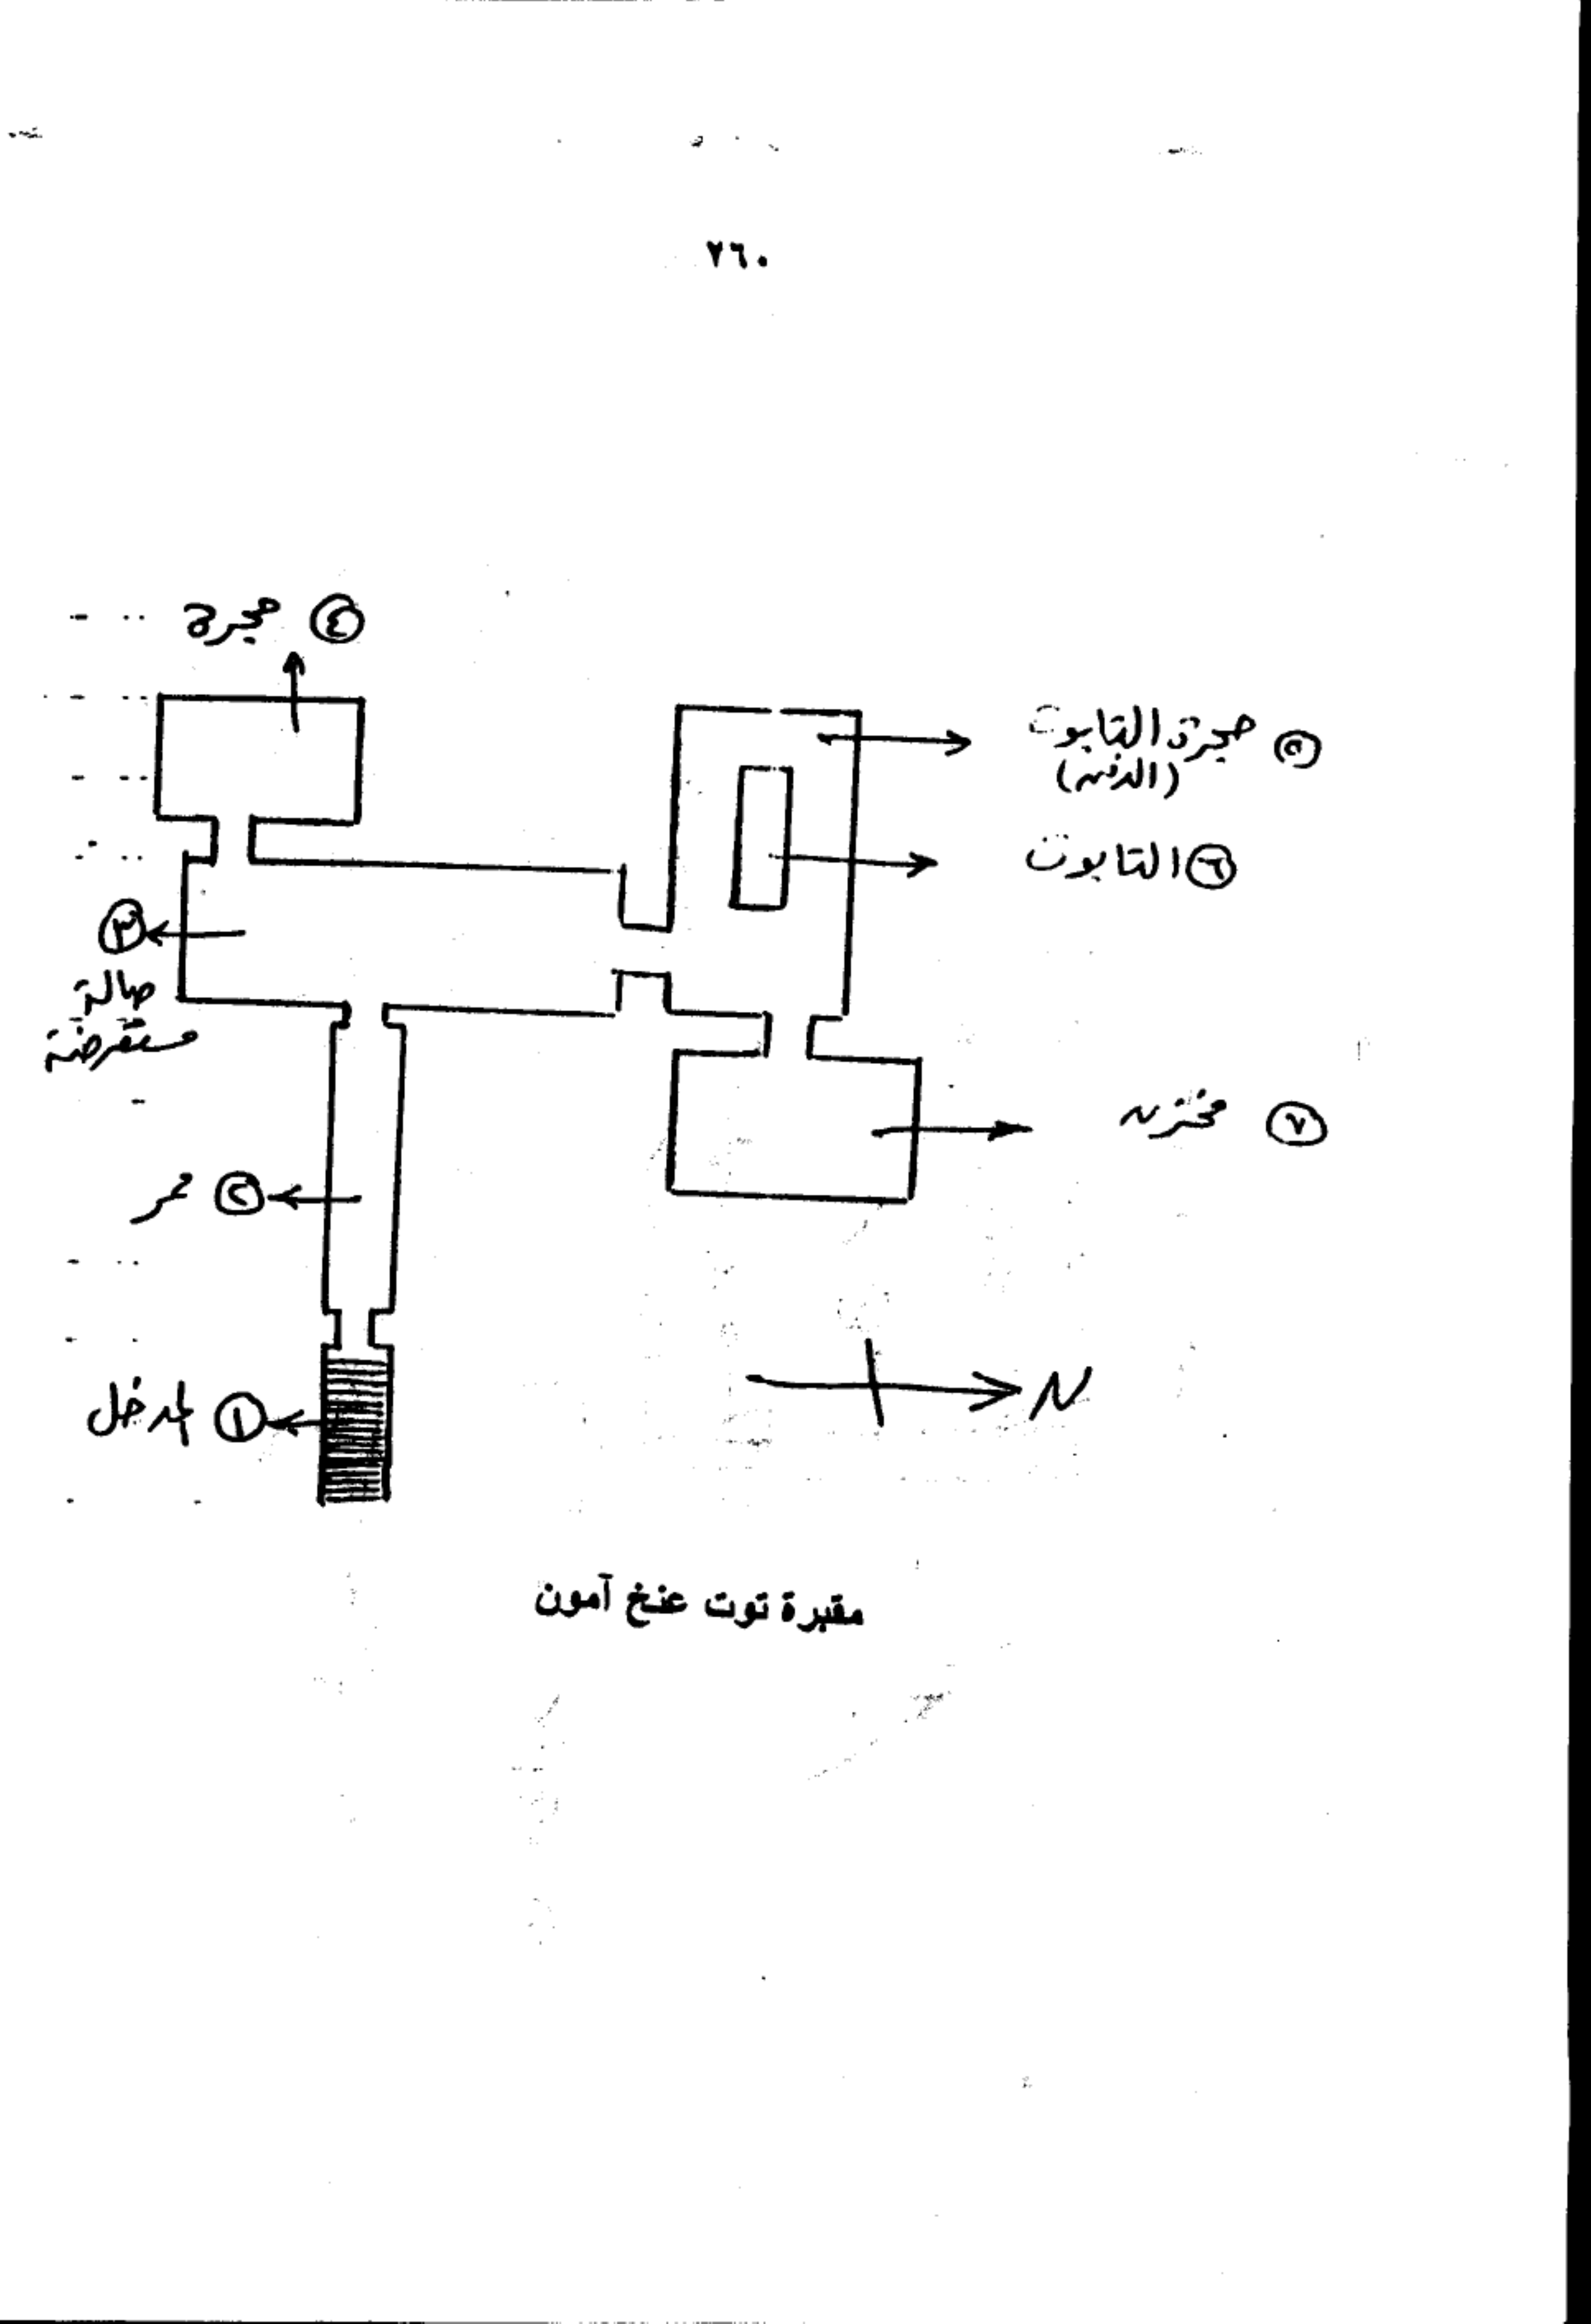 ٢٦٠
④ حجرة
⑤ حجرة التابوت
(الدفن)
⑥ التابوت
③
صالة
مستعرضة
⑦ مخزن
② ممر
① المدخل
N
مقبرة توت عنخ آمون